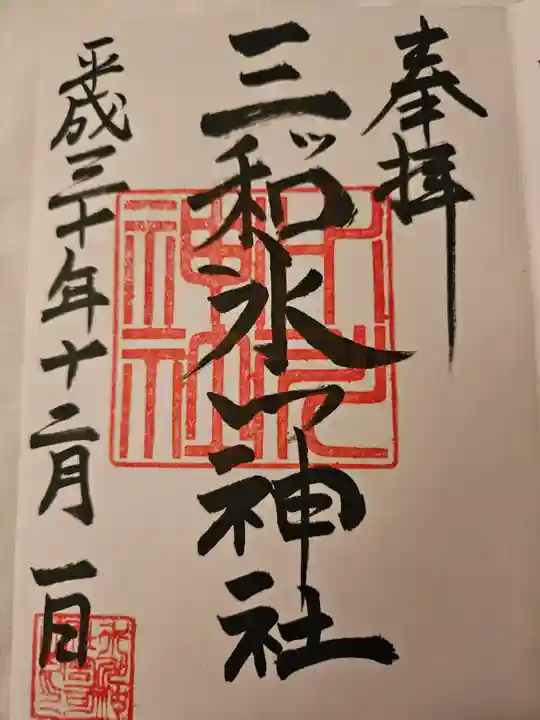 奉拝
三ツ和氷川神社
氷川
神社
平成三十年十二月一日